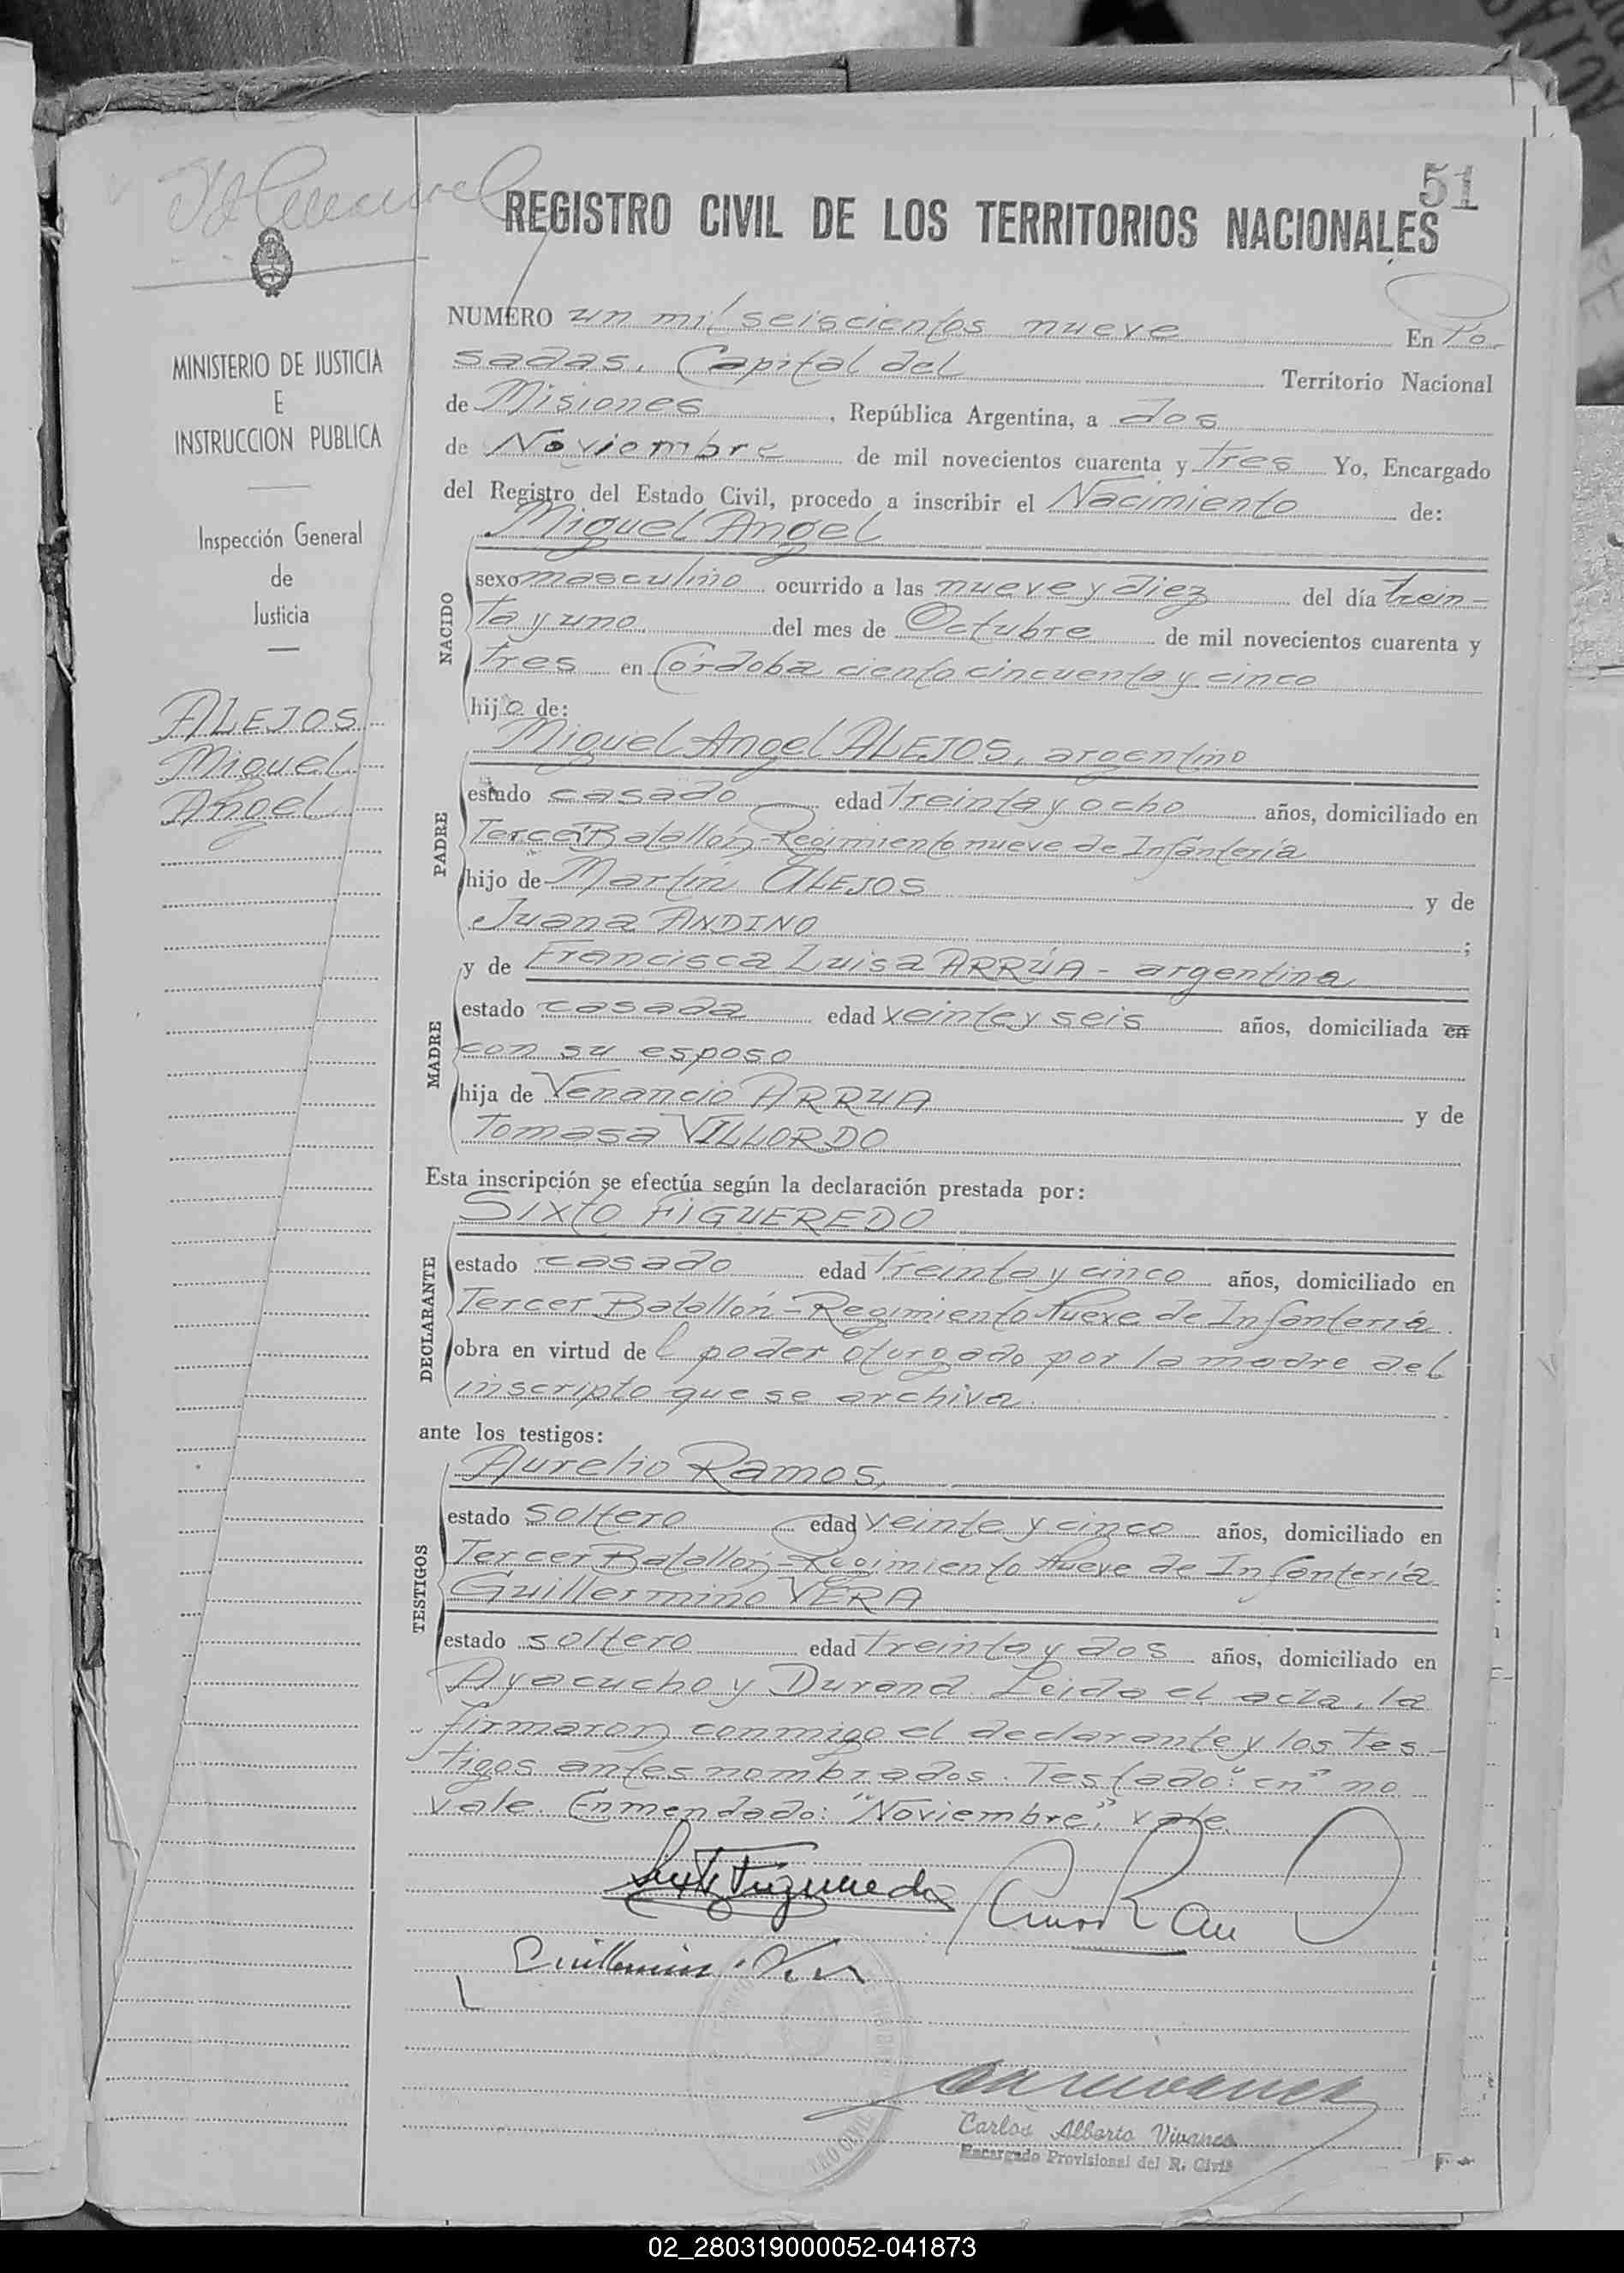 51
REGISTRO CIVIL DE LOS TERRITORIOS NACIONALES
MINISTERIO DE JUSTICIA
E
INSTRUCCION PUBLICA
Inspección General
de
Justicia
ALEJOS
Miguel
Angel
NUMERO un mil seiscientos nueve En Po-
sadas, Capital del Territorio Nacional
de Misiones, República Argentina, a dos
de Noviembre de mil novecientos cuarenta y tres Yo, Encargado
del Registro del Estado Civil, procedo a inscribir el Nacimiento de:
NACIDO
Miguel Angel
sexo masculino ocurrido a las nueve y diez del día trein-
ta y uno del mes de Octubre de mil novecientos cuarenta y
tres en Córdoba ciento cincuenta y cinco
hijo de:
PADRE
Miguel Angel ALEJOS, argentino
estado casado edad treinta y ocho años, domiciliado en
Tercer Batallón-Regimiento nueve de Infantería
hijo de Martín ALEJOS y de
Juana ANDINO;
MADRE
y de Francisca Luisa ARRÚA - argentina
estado casada edad veinte y seis años, domiciliada en
con su esposo
hija de Venancio ARRUA y de
Tomasa VILLORDO
Esta inscripción se efectúa según la declaración prestada por:
DECLARANTE
Sixto FIGUEREDO
estado casado edad treinta y cinco años, domiciliado en
Tercer Batallón-Regimiento Nueve de Infantería.
obra en virtud del poder oturgado por la madre del
inscripto que se archiva.
ante los testigos:
TESTIGOS
Aurelio Ramos,
estado soltero edad veinte y cinco años, domiciliado en
Tercer Batallón-Regimiento Nueve de Infantería
Guillermino VERA
estado soltero edad treinta y dos años, domiciliado en
Ayacucho y Durand. Leida el acta, la
firmaron conmigo el declarante y los tes-
tigos antes nombrados. Testado: "en" no
vale. Enmendado: "Noviembre", vale.
Sixto Figueredo
Carlos Alberto Vivanco
Encargado Provisional del R. Civil
02_280319000052-041873